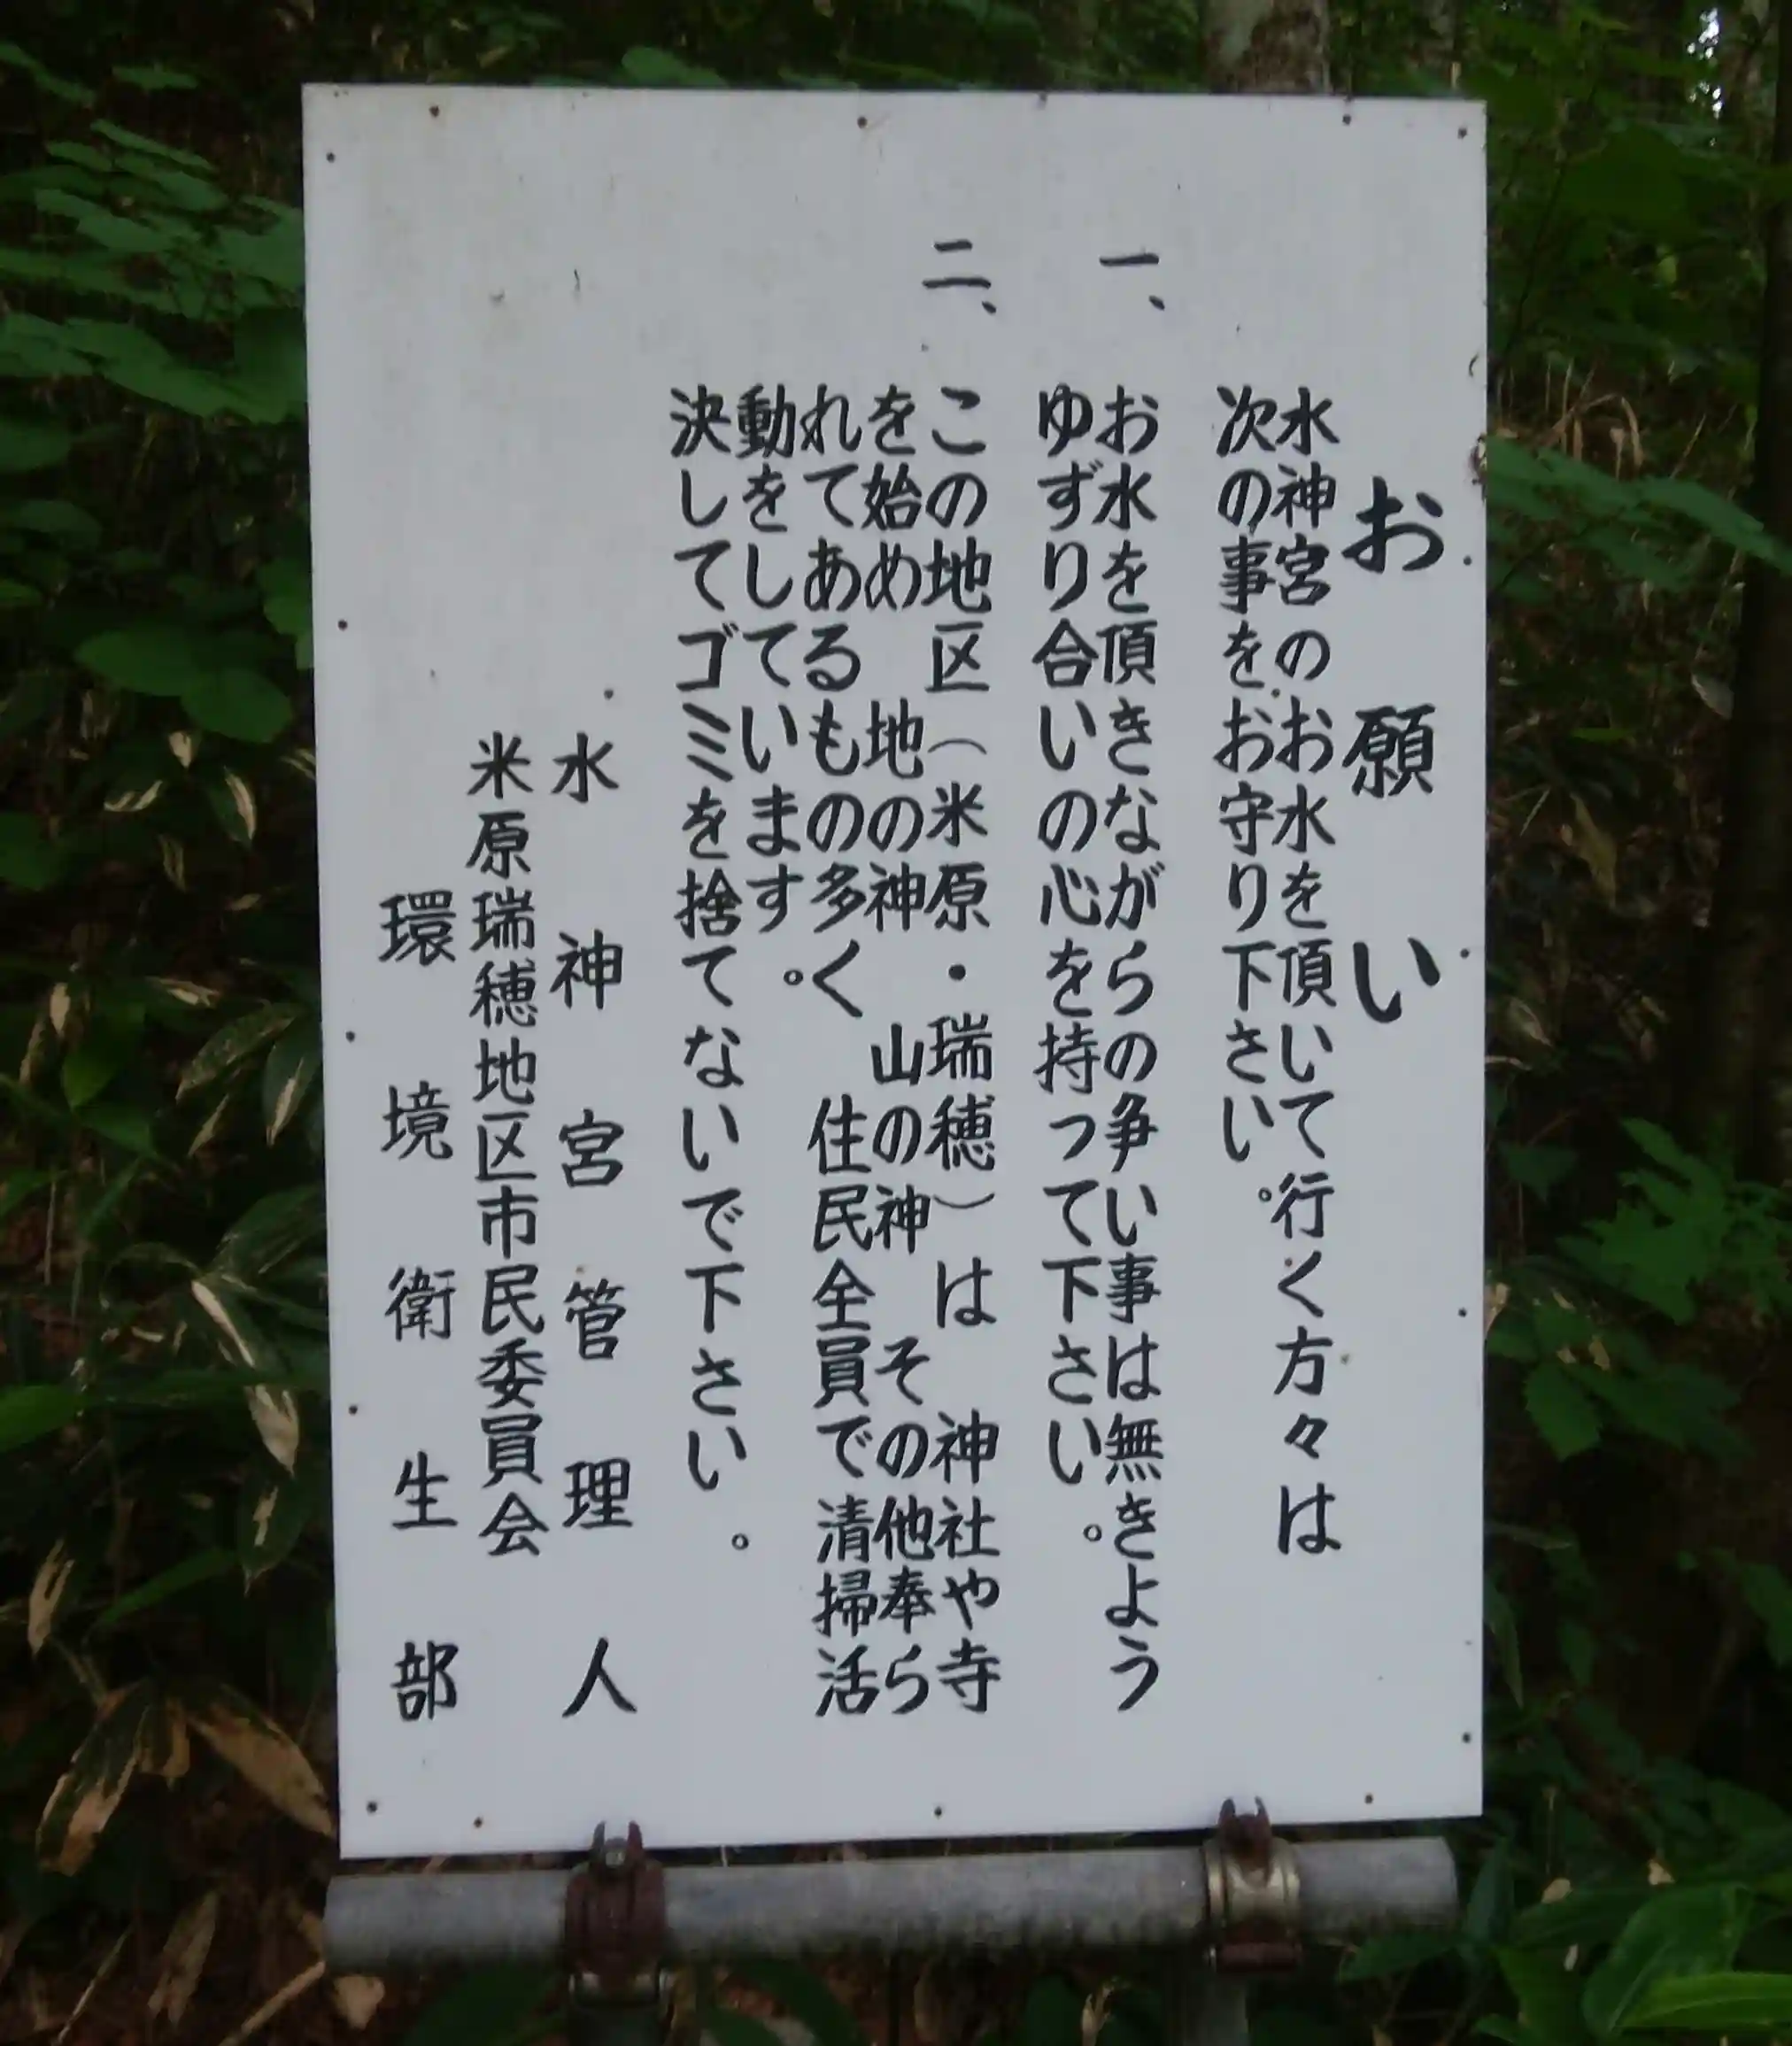 お願い
水神宮のお水を頂いて行く方々は
次の事をお守り下さい。
一、お水を頂きながらの争い事は無きよう
ゆずり合いの心を持って下さい。
二、この地区（米原・瑞穂）は　神社や寺
を始め　地の神　山の神　その他奉ら
れてあるもの多く　住民全員で清掃活
動をしています。
決してゴミを捨てないで下さい。
水神宮管理人
米原瑞穂地区市民委員会
環境衛生部